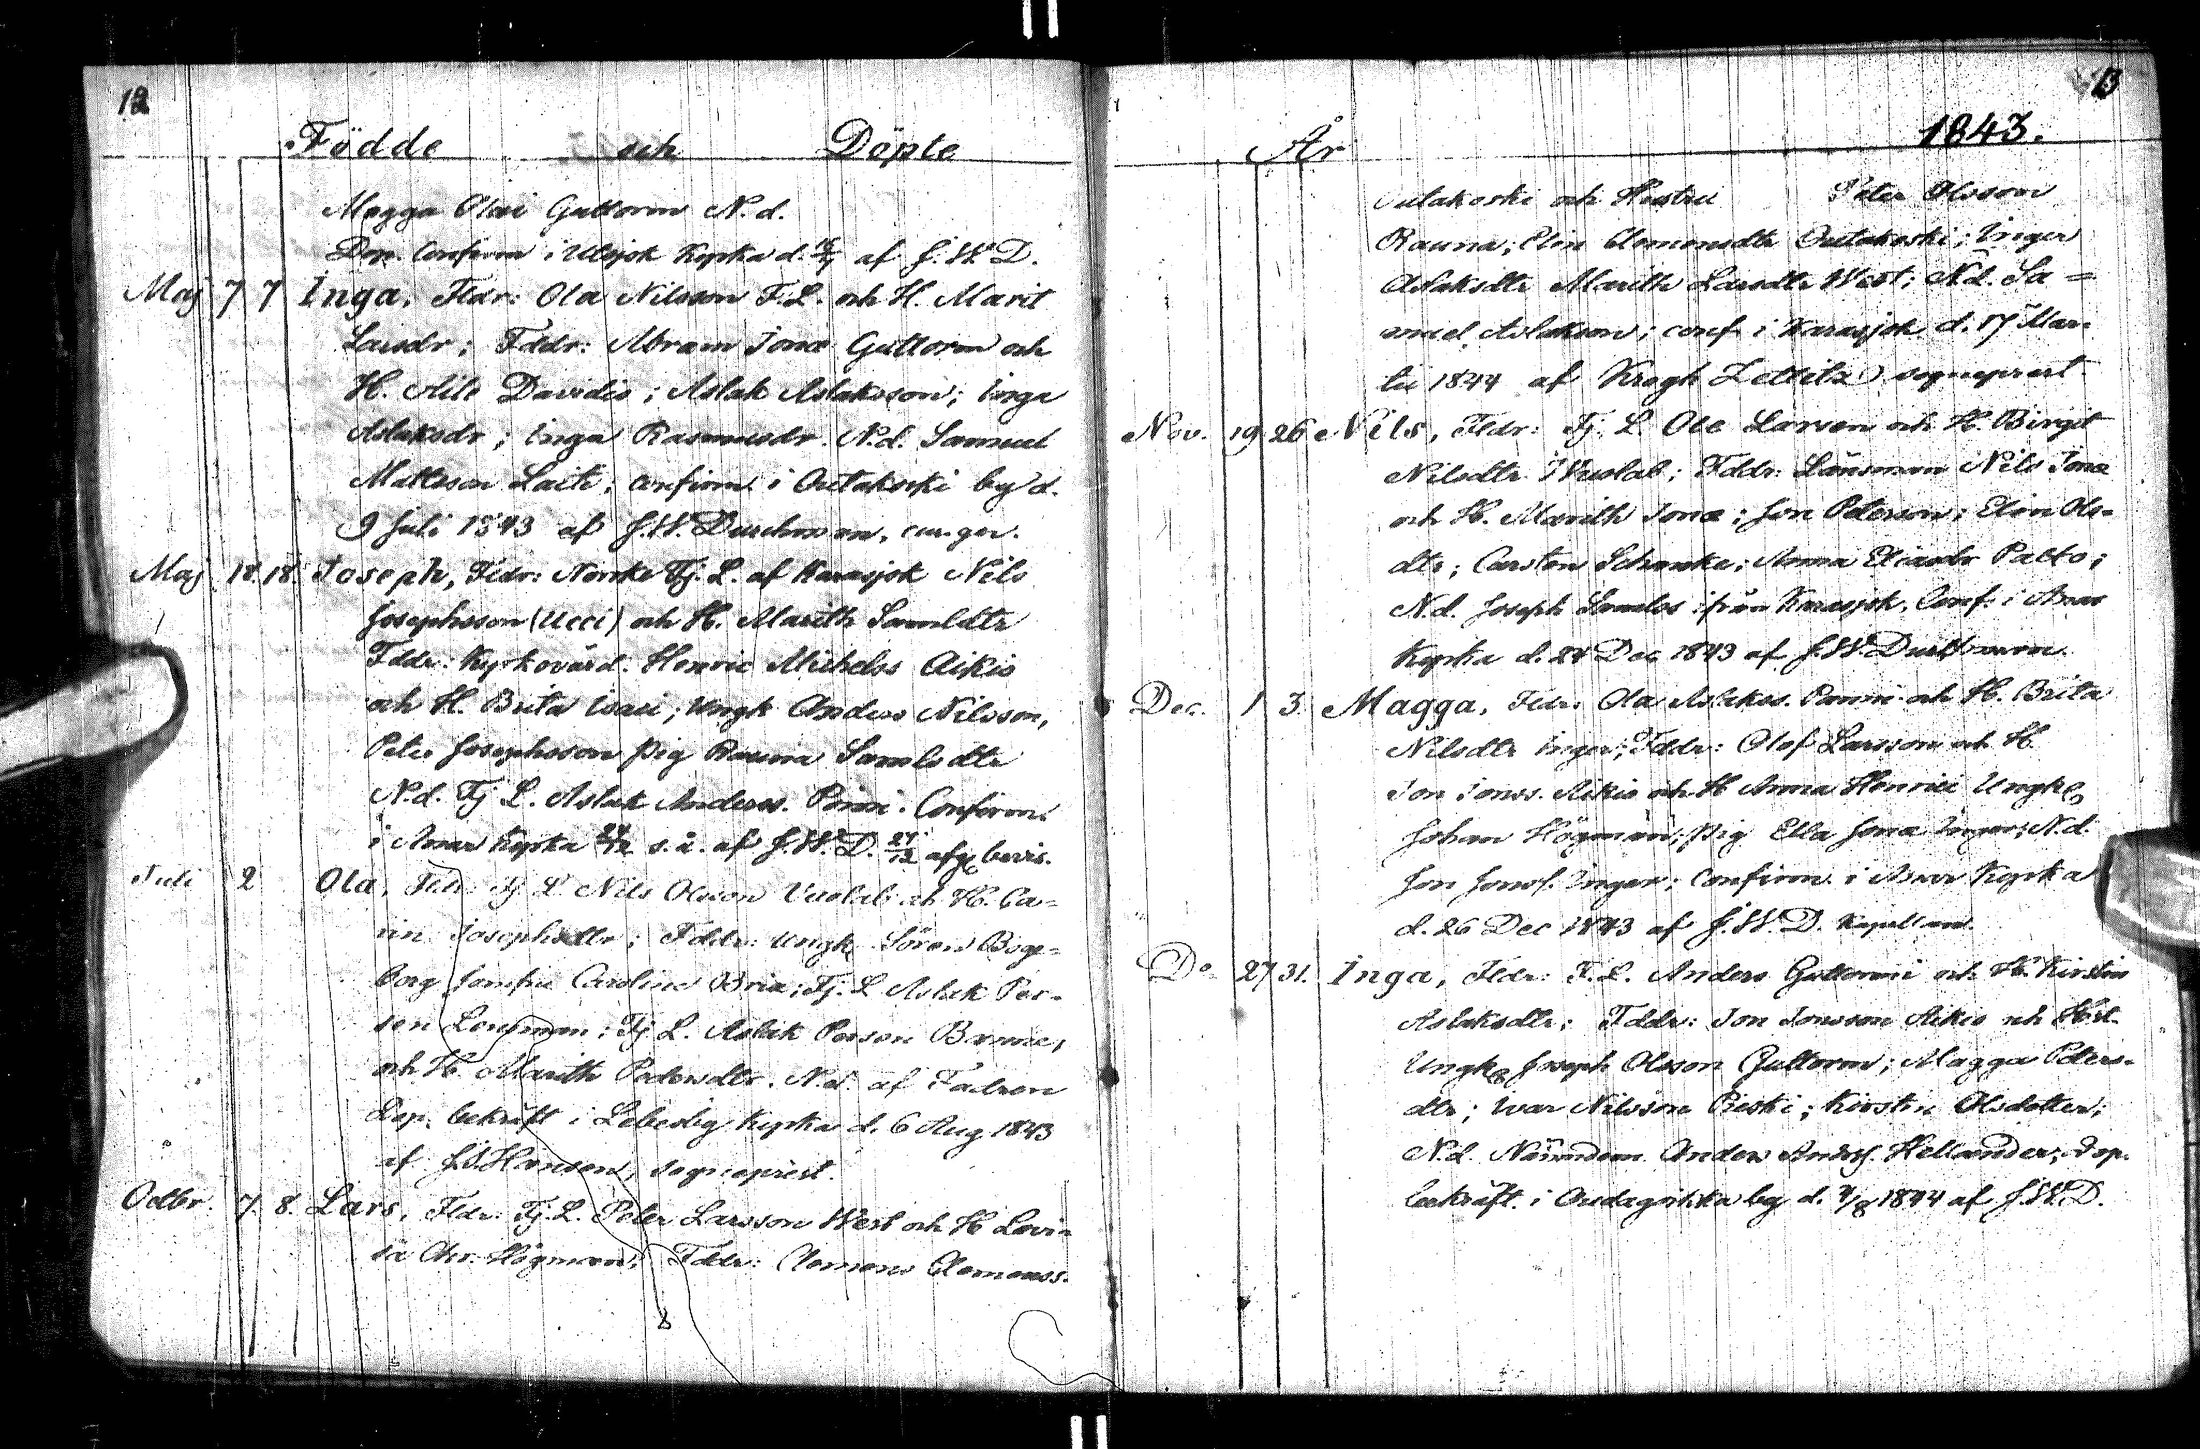 12
Födde och Döpte
Magga Olai Guttorm N. d.
Dop. Confirm i Utsjok Kyrka d. af J. W. D.
Maj 7 7 Inga, Fldr: Ola Nilsson F. L. och H. Marit
Larsdr; Fddr: Abram Jonæ Guttorm och
H. Aile Davidis; Aslak Aslaksson; Inga
Aslaksdr; Inga Rasmusdr. N.d. Samuel
Mattsson Laiti; confirm. i Outakoski by d.
9 Juli 1843 af J. W. Durchman,
Maj 18. 18. Joseph, Fldr: Norske Fj. L. af Karasjok Nils
Josephsson (Ucci) och H. Marith Samldtr
Fddr: Kyrkovärd. Henric Michelss Aikio
och H. Brita Isaci; Ungk Anders Nilsson,
Peter Josephsson pig Rauna Samlsdtr
N.d. Fj L. Aslak Anderss. Confirm.
i Anar Kyrka 24/12 s. å. af J. W. D. 27/12 bevis.
Juli 2 Ola, Fldr Fj L. Nils Olsson Vuolab och H. Ca=
rin Josephsdtr; Fddr: Ungk Sören Boge=
borg Jomfru Carolina Fj. L Aslak Per=
sen Fj L. Aslak Person
och H Marith Pedersdtr. N.d. af Fadren
Dop. bekräft i Lebesby Kyrka d. 6 Aug 1843
af Hansen, sogneprest.
Octbr. 7. 8. Lars, Fldr Fj. L. Peter Larsson West och H Lovi=
sa Chr. Högman; Fddr: Clemens Clemenss.
13
År 1843.
Outakoski och Hustru Peter Olsson
Rauna; Elin Clemensdtr Outakoski; Inger
Aslaksdtr Marith Larsdtr West; N.d. Sa=
muel Aslakson; conf. i Karasjok d. 17 Mar=
tii 1844 af Krogh Zetlitz sogneprest
Nov. 19 26 Nils, Fldr: Fj. L. Ole Larsen och H. Birgit
Nilsdtr Wuolab; Fddr: Länsman Nils Jonæ
och H. Marith Jonæ; Jon Peterson; Elin Ols=
dtr; Carsten Schanke; Anna Eliasdr Palto;
N.d. Joseph Samlss ifrån Karasjok, Conf. i Anar
Kyrka d. 24 Dec 1843 af J. W. Durchman.
Dec. 1 3 Magga, Fldr: Ola Aslakss. och H. Brita
Nilsdtr Inger; Fddr: Olof Larsson och H.
Jon Jonss. Aikio och H Anna Henrici Ungk
Johan Högman; pig Ella Jonæ Inger; N.d.
Jon Jonss. Inger; Confirm. i Anar Kyrka
d. 26 Dec 1843 af J. W. D. Kapellan.
Do 27 31. Inga, Fldr: F. L. Anders Guttormi och H. Kirstin
Aslaksdtr; Fddr: Jon Jonsson Aikio och
Ungk Joseph Olsson Guttorm; Magga Peters=
dtr; Ivar Nilsson Pieski; Kirstin Olsdotter;
N.d. Nämndem. Anders Anderss. Hellander; Dop.
bekräft. i by d. 1844 af J. W. D.